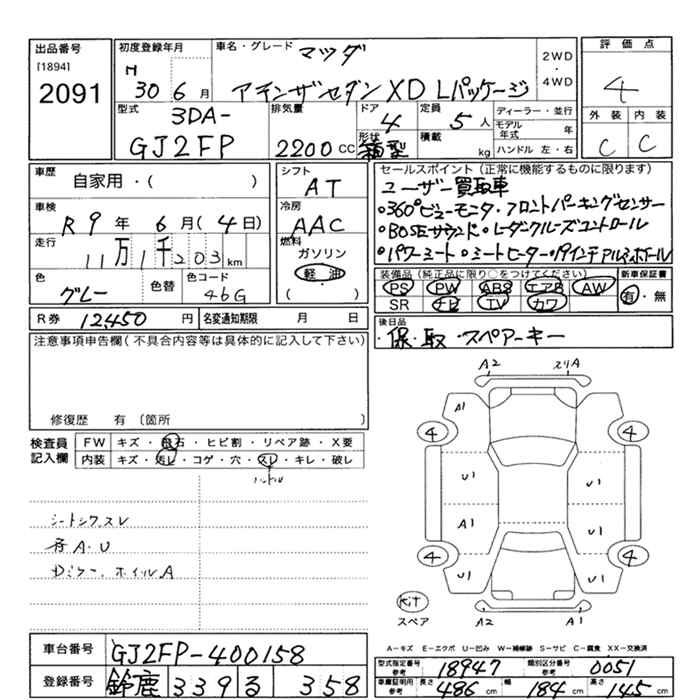 出品番号
[1894]
2091
初度登録年月
H
30 6 月
車名・グレード マツダ
アテンザセダン XD Lパッケージ
2WD
・
4WD
評価点
4
外装 内装
C C
型式
3DA-
GJ2FP
排気量
2200 CC
ドア
4
形状
箱型
定員
5 人
積載
kg
ディーラー・並行
モデル年式 年
ハンドル 左・右
車歴
自家用・( )
車検
R 9 年 6 月 (4 日)
走行
11万1千203 km
色
グレー
色替
色コード
46G
シフト
AT
冷房
AAC
燃料
ガソリン
軽油
( )
セールスポイント(正常に機能するものに限ります)
ユーザー買取車
○360°ビューモニタ・フロントパーキングセンサー
○BOSEサウンド・レーダークルーズコントロール
○パワーシート・シートヒーター・19インチアルミホイール
装備品(純正品に限り○をつけてください)
PS PW ABS エアB AW
SR ナビ TV カワ
新車保証書
有・無
R券 12,450 円
名変通知期限 月 日
後日品
・保・取・スペアーキー
注意事項申告欄(不具合内容等は具体的に記入して下さい)
修復歴 有 〔箇所
検査員
記入欄
FW キズ・飛石・ヒビ割・リペア跡・X要
内装 キズ・汚レ・コゲ・穴・スレ・キレ・破レ
ハンドル
シートシワスレ
A・U
ホイルA
A2 スリA
A1
4 4
U1 U1
A1 U1
U1 U1
4 4
Kit
スペア
A2 A1
A-キズ E-エクボ U-凹み W-補修跡 S-サビ C-腐食 XX-交換済
車台番号
GJ2FP-400158
登録番号
鈴鹿 339 る 358
型式指定番号
参考
18947
類別区分番号
参考
0051
車庫証明用
参考
長さ 486 cm 幅 184 cm 高さ 145 cm